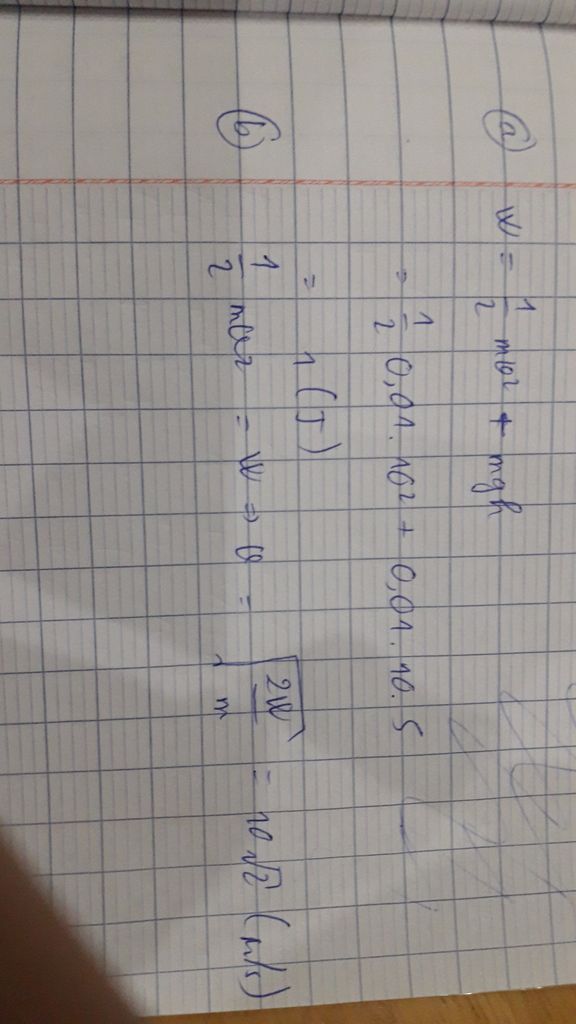 (a) W = 1/2 mv² + mgh
= 1/2 0,01. 10² + 0,01. 10. 5
= 1 (J)
(b) 1/2 mv² = W ⇒ v = √(2W/m) = 10√2 (m/s)